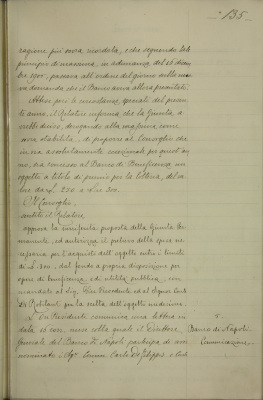 135
ragione più non ricordata, e che seguendo tale
principio di massima, in ordinanza del 16 dicem
bre 1901, passava all'ordine del giorno della nuo
va domanda che il Banco aveva allora presentata.
Attese però le circostanze speciali del presen
te anno, il Relatore informa che la Giunta, a
vrebbe deciso, derogando alla massima come
sopra stabilita, di proporre al Consiglio che
in via assolutamente eccezionale per quest'an
no, sia concesso al Banco di Beneficenza un
oggetto a titolo di premio per la lotteria, del va
lore da L. 250 a Lire 300.
Il Consiglio
sentito il Relatore
approva la surriferita proposta della Giunta Per
manente, ed autorizza il prelievo della spesa ne
cessaria per l'acquisto dell'oggetto entro i limiti
di L. 300, dal fondo a propria disposizione per
opere di beneficenza ed utilità pubblica, con
mandato al Sig. Vice Presidente ed al Signor Conte
De Reblaut per la scelta dell'oggetto medesimo.
Il Presidente comunica una lettera in
data 16 corr. mese colla quale il Direttore
Generale del Banco di Napoli partecipa di aver
nominato i Sigg. Comm. Carlo De Filippis e
Banco di Napoli.
Comunicazione.